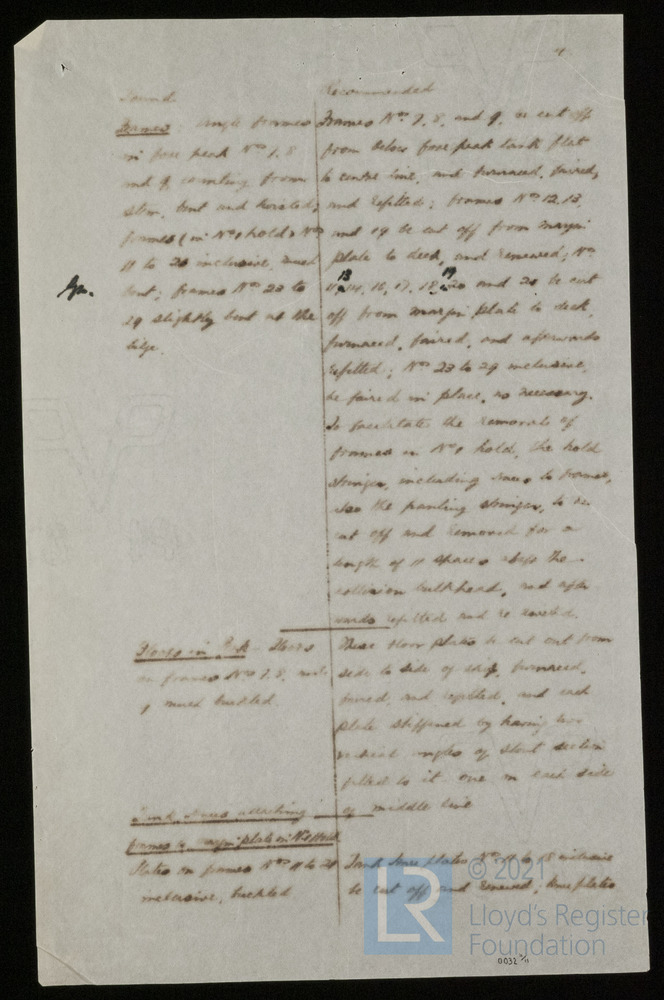 Found
Frames: Angle frames
in fore peak Nos 7, 8
and 9, counting from
stem, bent and twisted;
frames (in No 1 hold) Nos
11 to 20 inclusive, much
bent; frames Nos 23 to
29 slightly bent at the
bilge.
Floors in Peak - Floors
on frames Nos 7, 8, and
9 much buckled.
Tank knees attaching
frames to margin plate in No 1 Hold
Plates on frames Nos 11 to 20
inclusive, buckled
Recommended
Frames Nos 7, 8, and 9, be cut off
from below fore peak tank flat
to centre line, and furnaced, faired,
and refitted; frames Nos 12, 13,
and 19 be cut off from margin
plate to deck, and renewed; Nos
11, 13 14, 16, 17, 18, 19 20 and 21 be cut
off from margin plate to deck,
furnaced, faired, and afterwards
refitted; Nos 23 to 29 inclusive,
be faired in place, as necessary.
To facilitate the removals of
frames in No 1 hold, the hold
stringer, including knees to frames,
also the panting stringer, to be
cut off and removed for a
length of 11 spaces abaft the
collision bulkhead, and after
wards refitted and re riveted.
These floor plates be cut out from
side to side of ship, furnaced,
faired, and refitted, and each
plate stiffened by having two
vertical angles of stout section
fitted to it one on each side
of middle line
Tank knee plates Nos 11 to 18 inclusive
be cut off and renewed; knee plates
© 2021
LR
Lloyd's Register
Foundation
0032